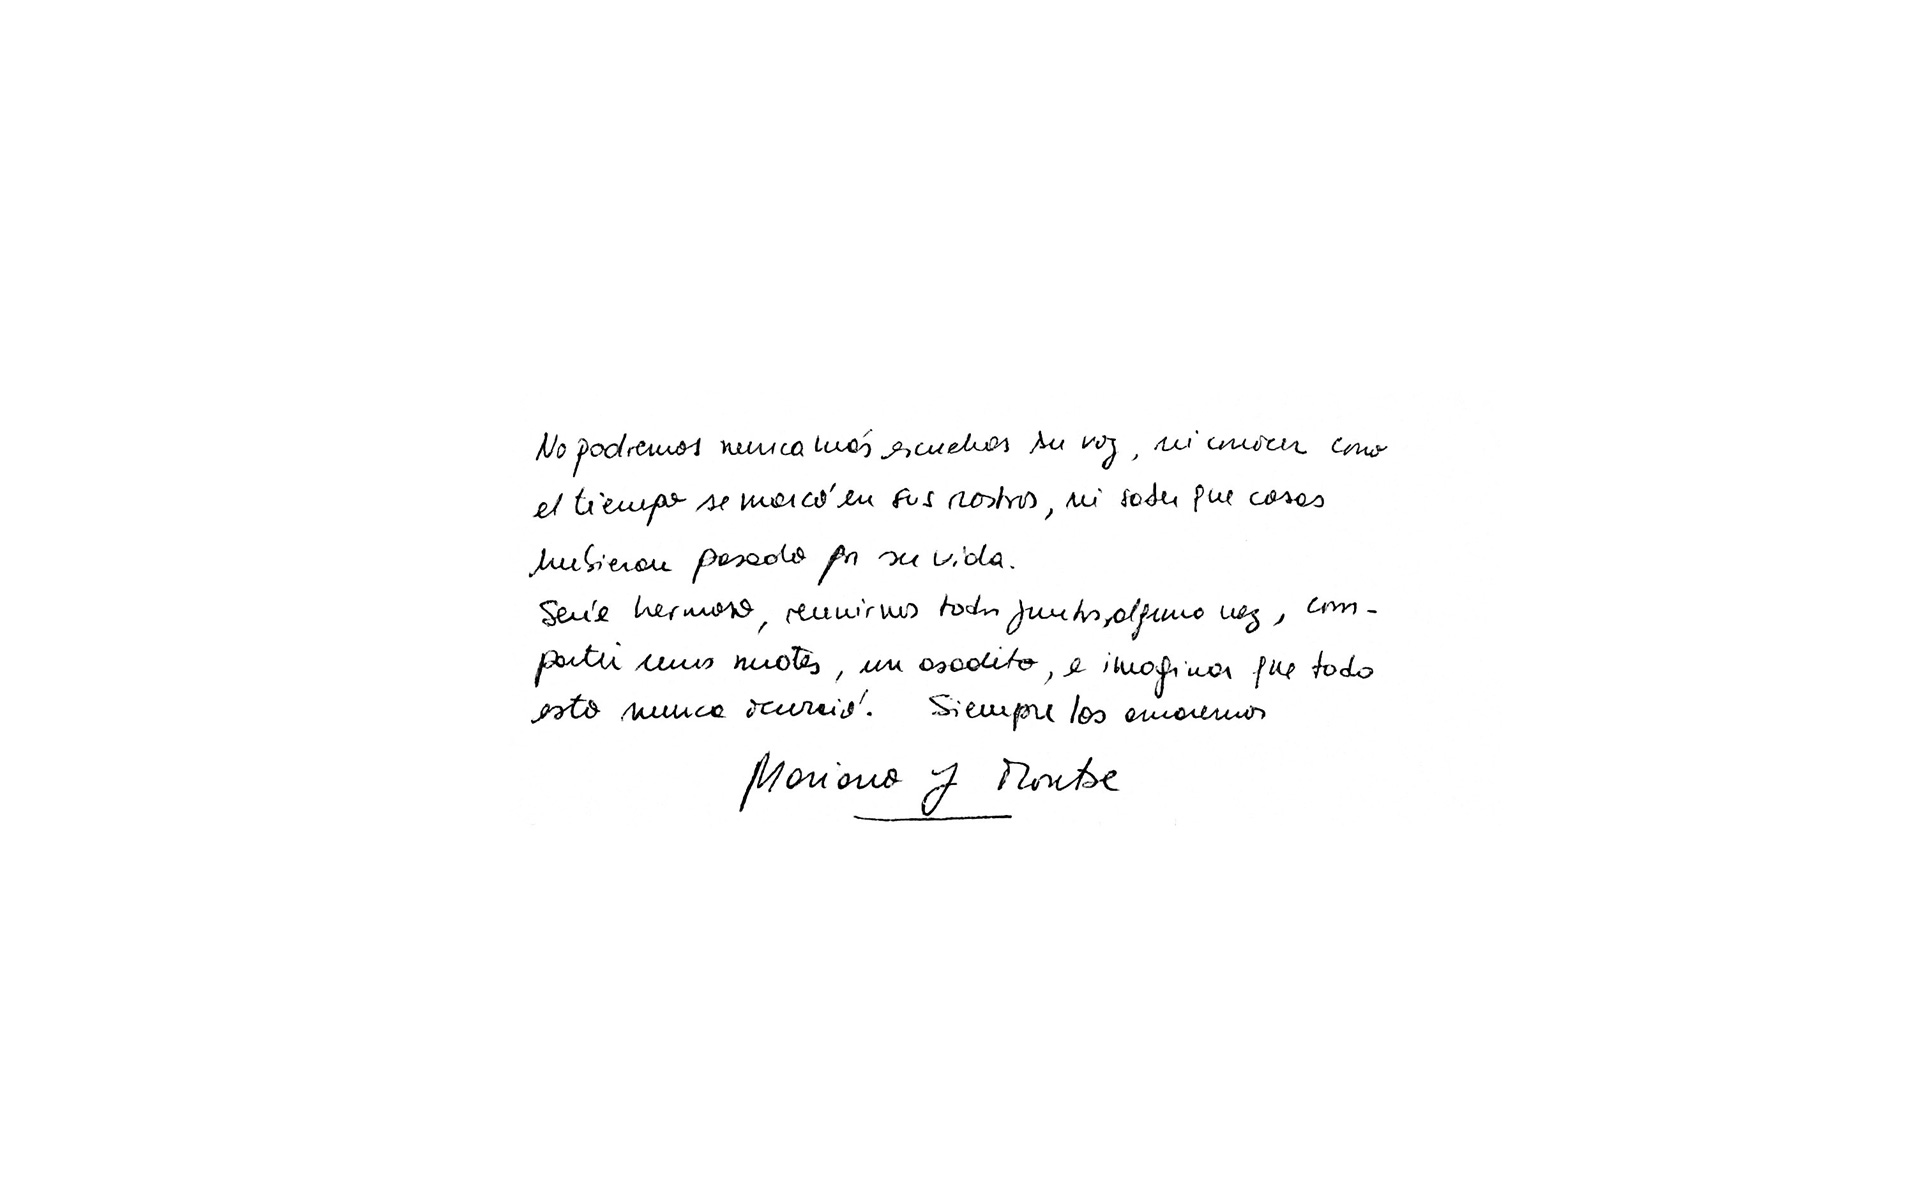 No podremos nunca más escuchar su voz, ni conocer como
el tiempo se marcó en sus rostros, ni saber que cosas
hubieran pasado por su vida.
Sería hermoso, reunirnos todos juntos, alguna vez, com-
partir unos mates, un asadito, e imaginar que todo
esto nunca ocurrió. Siempre los amaremos
Mariana y Montse